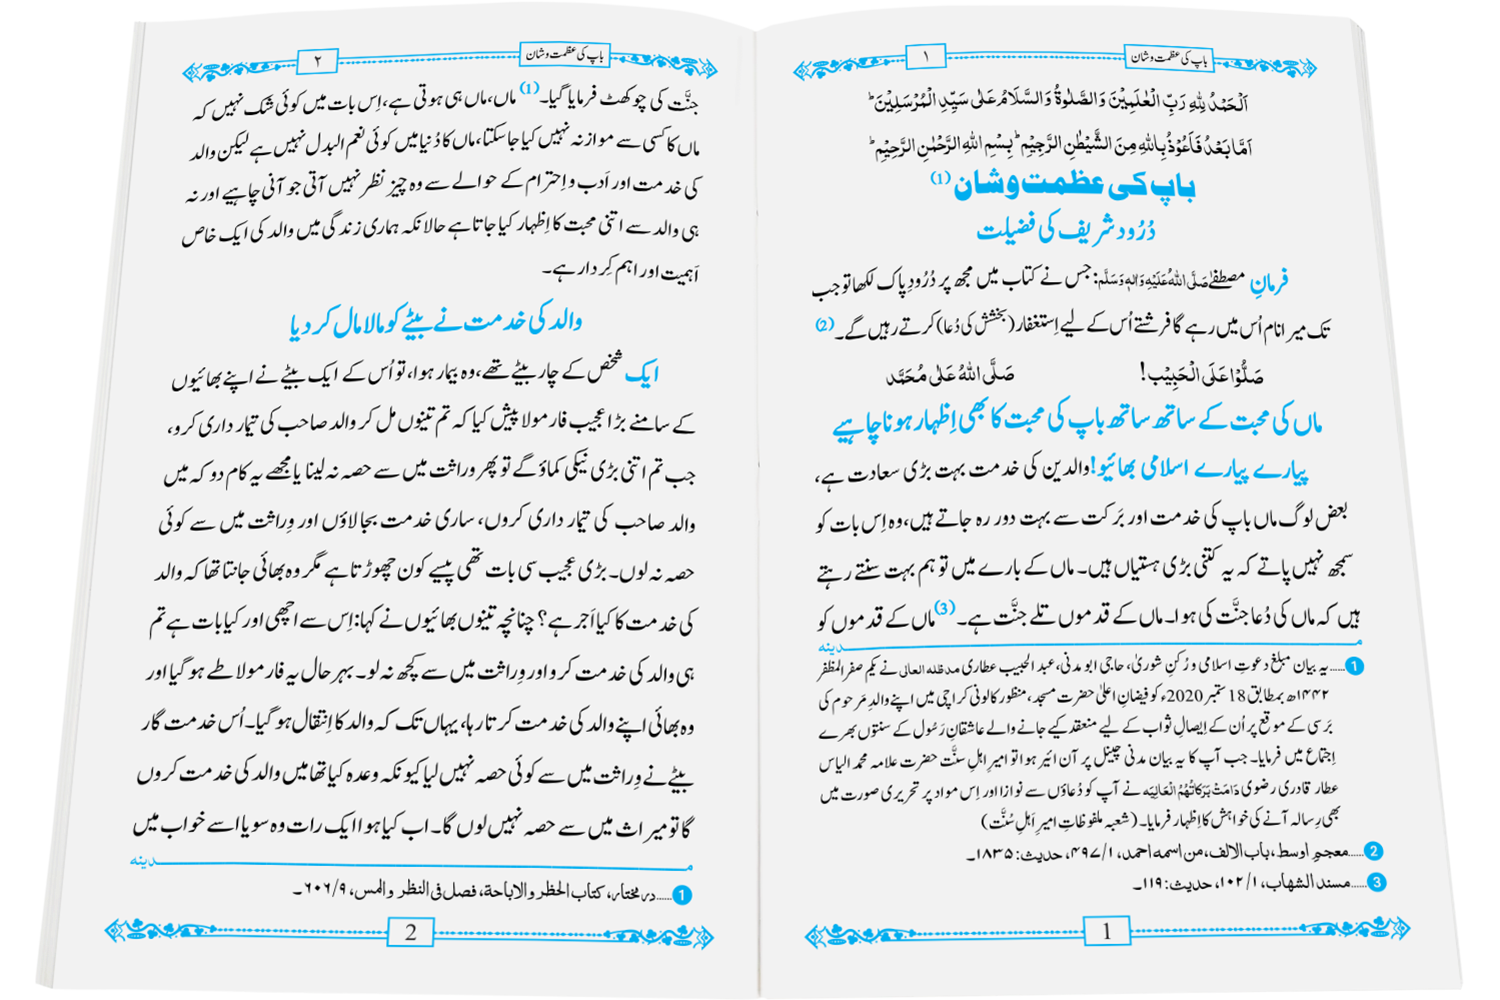 باپ کی عظمت و شان
۱
اَلْحَمْدُ لِلّٰہِ رَبِّ الْعٰلَمِیْنَ وَالصَّلٰوۃُ وَالسَّلَامُ عَلٰی سَیِّدِ الْمُرْسَلِیْنَ ؕ
اَمَّا بَعْدُ فَاَعُوْذُ بِاللّٰہِ مِنَ الشَّیْطٰنِ الرَّجِیْمِ ؕ بِسْمِ اللّٰہِ الرَّحْمٰنِ الرَّحِیْمِ ؕ
باپ کی عظمت و شان (1)
دُرُود شریف کی فضیلت
فرمانِ مصطفےٰ صَلَّی اللّٰہُ عَلَیْہِ وَاٰلِہٖ وَسَلَّم: جس نے کتاب میں مجھ پر دُرُودِ پاک لکھا تو جب
تک میرا نام اُس میں رہے گا فرشتے اُس کے لیے اِستغفار (بخشش کی دُعا) کرتے رہیں گے۔ (2)
صَلُّوْا عَلَی الْحَبِیْب! صَلَّی اللّٰہُ عَلٰی مُحَمَّد
ماں کی محبت کے ساتھ ساتھ باپ کی محبت کا بھی اِظہار ہونا چاہیے
پیارے پیارے اسلامی بھائیو! والدین کی خدمت بہت بڑی سعادت ہے،
بعض لوگ ماں باپ کی خدمت اور برَکت سے بہت دور رہ جاتے ہیں، وہ اِس بات کو
سمجھ نہیں پاتے کہ یہ کتنی بڑی ہستیاں ہیں۔ ماں کے بارے میں تو ہم بہت سنتے رہتے
ہیں کہ ماں کی دُعا جنَّت کی ہوا۔ ماں کے قدموں تلے جنَّت ہے۔ (3) ماں کے قدموں کو
مــدینه
1 ……یہ بیان مبلغِ دعوتِ اسلامی و رُکنِ شوریٰ، حاجی ابو مدنی، عبد الحبیب عطاری مدظلہ العالی نے یکم صفر المظفر
۱۴۴۲ھ بمطابق 18 ستمبر 2020ء کو فیضانِ اعلیٰ حضرت مسجد، منظور کالونی کراچی میں اپنے والدِ مَرحوم کی
بَرسی کے موقع پر اُن کے اِیصالِ ثواب کے لیے منعقد کیے جانے والے عاشقانِ رَسُول کے سنتوں بھرے
اِجتماع میں فرمایا۔ جب آپ کا یہ بیان مدنی چینل پر آن ائیر ہوا تو امیرِ اہلِ سنَّت حضرت علامہ محمد الیاس
عطار قادری رضوی دَامَتْ بَرَکَاتُہُمُ الْعَالِیَہ نے آپ کو دُعاؤں سے نوازا اور اِس مواد پر تحریری صورت میں
بھی رِسالہ آنے کی خواہش کا اِظہار فرمایا۔ (شعبہ ملفوظاتِ امیرِ اَہلِ سُنَّت)
2 ……معجم اوسط، باب الالف، من اسمہ احمد، ۱/۴۹۷، حدیث: ۱۸۳۵۔
3 ……مسند الشهاب، ۱/۱۰۲، حدیث: ۱۱۹۔
1
باپ کی عظمت و شان
۲
جنَّت کی چوکھٹ فرمایا گیا۔ (1) ماں، ماں ہی ہوتی ہے، اِس بات میں کوئی شک نہیں کہ
ماں کا کسی سے موازنہ نہیں کیا جاسکتا، ماں کا دُنیا میں کوئی نعم البدل نہیں ہے لیکن والد
کی خدمت اور اَدب و اِحترام کے حوالے سے وہ چیز نظر نہیں آتی جو آنی چاہیے اور نہ
ہی والد سے اتنی محبت کا اِظہار کیا جاتا ہے حالانکہ ہماری زندگی میں والد کی ایک خاص
اَہمیت اور اہم کِردار ہے۔
والد کی خدمت نے بیٹے کو مالا مال کر دیا
ایک شخص کے چار بیٹے تھے، وہ بیمار ہوا، تو اُس کے ایک بیٹے نے اپنے بھائیوں
کے سامنے بڑا عجیب فارمولا پیش کیا کہ تم تینوں مل کر والد صاحب کی تیمارداری کرو،
جب تم اتنی بڑی نیکی کماؤ گے تو پھر وراثت میں سے حصہ نہ لینا یا مجھے یہ کام دو کہ میں
والد صاحب کی تیمار داری کروں، ساری خدمت بجا لاؤں اور وِراثت میں سے کوئی
حصہ نہ لوں۔ بڑی عجیب سی بات تھی پیسے کون چھوڑتا ہے مگر وہ بھائی جانتا تھا کہ والد
کی خدمت کا کیا اَجر ہے؟ چنانچہ تینوں بھائیوں نے کہا: اِس سے اچھی اور کیا بات ہے تم
ہی والد کی خدمت کرو اور وِراثت میں سے کچھ نہ لو۔ بہرحال یہ فارمولا طے ہو گیا اور
وہ بھائی اپنے والد کی خدمت کرتا رہا، یہاں تک کہ والد کا اِنتقال ہو گیا۔ اُس خدمت گار
بیٹے نے وِراثت میں سے کوئی حصہ نہیں لیا کیونکہ وعدہ کیا تھا میں والد کی خدمت کروں
گا تو میراث میں سے حصہ نہیں لوں گا۔ اب کیا ہوا ایک رات وہ سویا اسے خواب میں
مــدینه
1 ……در مختار، کتاب الحظر والاباحة، فصل فی النظر والمس، ۹/۶۰۶۔
2